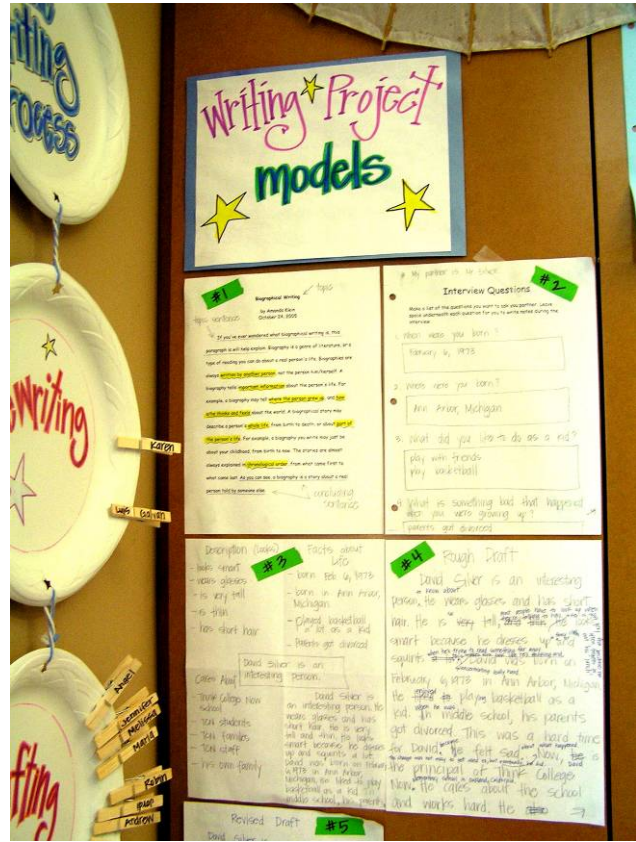 Writing
Process
Prewriting
Drafting
Karen
Luis
Galvan
Angel
Jennifer
Melissa
Maria
Robin
Andrew
Writing Project
models
#1
Biographical Writing
topic
by Amanda Klein
October 04, 2005
topic sentences
If you've ever wondered what biographical writing is, this
paragraph is will help explain. Biography is a genre of literature, or a
type of reading you can do about a real person's life. Biographies are
always written by another person, not the person him/herself. A
biography tells important information about the person's life. For
example, a biography may tell where the person grew up, and how
s/he thinks and feels about the world. A biographical story may
describe a person's whole life, from birth to death, or about part of
the person's life. For example, a biography you write may just be
about your childhood, from birth to now. The stories are almost
always explained in chronological order, from what came first to
what came last. As you can see, a biography is a story about a real
person told by someone else.
concluding
sentence
#2
My partner is Mr. Silver
Interview Questions
Make a list of the questions you want to ask you partner. Leave
space underneath each question for you to write notes during the
interview.
1. When were you born?
February 6, 1973
2. Where were you born?
Ann Arbor, Michigan
3. What did you like to do as a kid?
play with friends
play basketball
4. What is something bad that happened
when you were growing up?
parents got divorced
#3
Description (looks)
- looks smart
- wears glasses
- is very tall
- is thin
- has short hair
Facts about
Life
- born Feb 6, 1973
- born in Ann Arbor,
Michigan
- Played basketball
a lot as a kid
- Parents got divorced
David Silver is an
interesting person.
Cares About
- Think College Now
school
- TCN students
- TCN families
- TCN staff
- his own family
David Silver is
an interesting person. He
wears glasses and has
short hair. He is very
tall and thin. He looks
smart because he dresses
up and squints a lot.
David was born on February
6, 1973 in Ann Arbor,
Michigan. He liked to play
basketball as a kid. In
middle school, his parents
#4
Rough Draft
David Silver is an interesting
person. He wears glasses and has short
hair. He is very tall
smart because he dresses up and
squints
David was born on
February 6, 1973 in Ann Arbor, Michigan.
He play basketball as a
kid. In middle school, his parents
got divorced. This was a hard time
for David. He felt sad. Now, is
the principal of Think College
Now. He cares about the school
and works hard. He
#5
Revised Draft
David Silver is